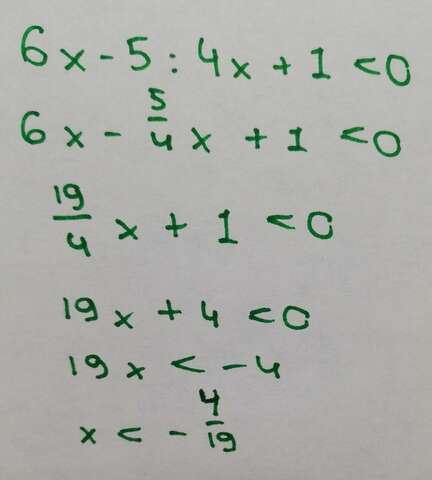 6x - 5 : 4x + 1 < 0
6x - 5/4 x + 1 < 0
19/4 x + 1 < 0
19x + 4 < 0
19x < -4
x < - 4/19